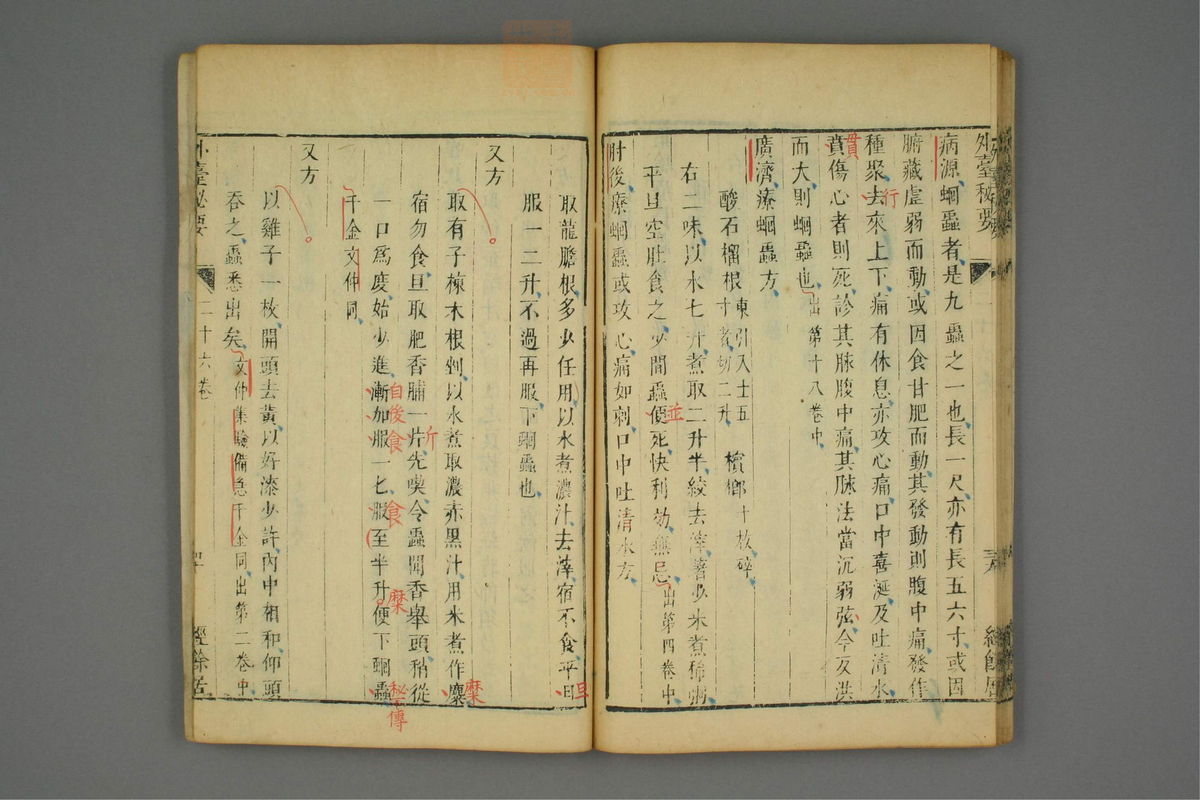 外臺秘要
病源蛔蟲者是九蟲之一也長一尺亦有長五六寸或因
腑藏虛弱而動或因食甘肥而動其發動則腹中痛發作
種聚去來上下痛有休息亦攻心痛口中喜涎及吐清水
行
貫傷心者則死診其脉腹中痛其脉法當沉弱弦今反洪
貫
而大則蛔蟲也出第十八卷中
廣濟療蛔蟲方
酸石榴根東引入土五寸者切二升 檳榔十枚碎
右二味以水七升煮取二升半絞去滓著少米煮稀粥
平旦空肚食之少間蟲便死快利効無忌出第四卷中
並
肘後療蛔蟲或攻心痛如刺口中吐清水方
取龍膽根多少任用以水煮濃汁去滓宿不食平旦
旦
服一二升不過再服下蛔蟲也
又方
取有子楝木根剉以水煮取濃赤黑汁用米煮作糜
糜
宿勿食旦取肥香脯一片先喫令蟲聞香舉頭稍從
一口爲度始少進漸加服一匕服至半升便下蛔蟲
自後食
食
糜
秘傳
千金文仲同
又方
以雞子一枚開頭去黃以好漆少許內中相和仰頭
吞之蟲悉出矣文仲集驗備急千金同出第二卷中
外臺秘要
二十六卷
經餘居